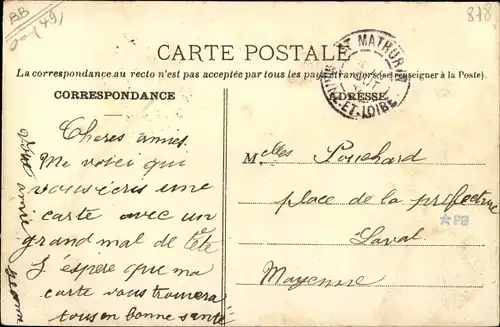 BB
(49)
878
CARTE POSTALE
ST MATHURIN
NE-ET-LOIRE
La correspondance au recto n'est pas acceptée par tous les pays étrangers (se renseigner à la Poste).
CORRESPONDANCE
ADRESSE
Cheres amies
Me voici qui
vous écris une
carte avec un
grand mal de tête
J'espère que ma
carte vous trouvera
tous en bonne santé
Votre amie
Melles Pouchard
place de la préfecture
Laval
Mayenne
PB